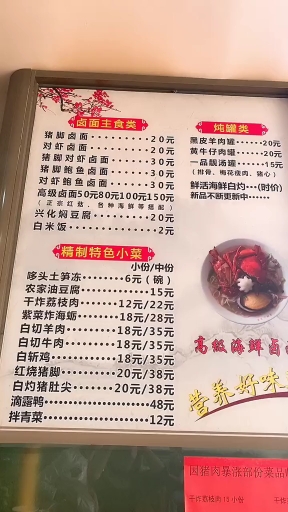 卤面主食类
猪脚卤面········20元
对虾卤面········20元
猪脚对虾卤面····30元
猪脚鲍鱼卤面····30元
对虾鲍鱼卤面····30元
高级卤面50元80元100元150元
(正宗红菇、各种海鲜等搭配)
兴化焖豆腐······20元
白米饭··········2元
炖罐类
黑皮羊肉罐······20元
黄牛仔肉罐······20元
一品靓汤罐······15元
(排骨、梅花瘦肉、猪心)
鲜活海鲜白灼···(时价)
新品不断更新中······
精制特色小菜
小份/中份
哆头土笋冻·······6元(碗)
农家油豆腐········15元
干炸荔枝肉····12元/22元
紫菜炸海蛎····18元/28元
白切羊肉······18元/35元
白切牛肉······18元/35元
白斩鸡········18元/35元
红烧猪脚······20元/38元
白灼猪肚尖····20元/38元
滴露鸭············48元
拌青菜············12元
高级海鲜卤
营养好味
因猪肉暴涨部份菜品
干炸荔枝肉15小份